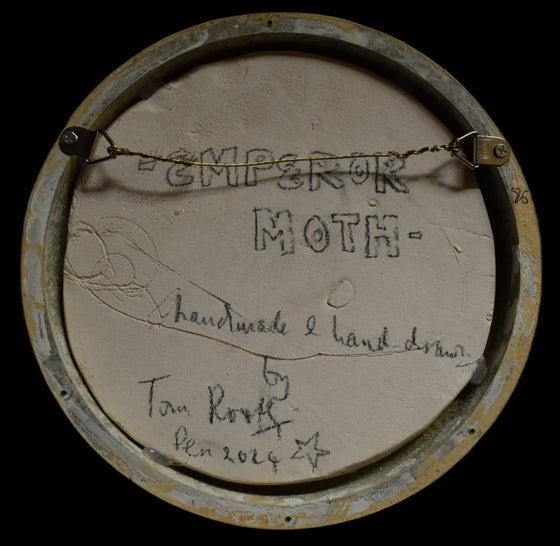 -EMPEROR
MOTH-
96
handmade & hand-drawn
by
Tom Rooth
Pen 2024